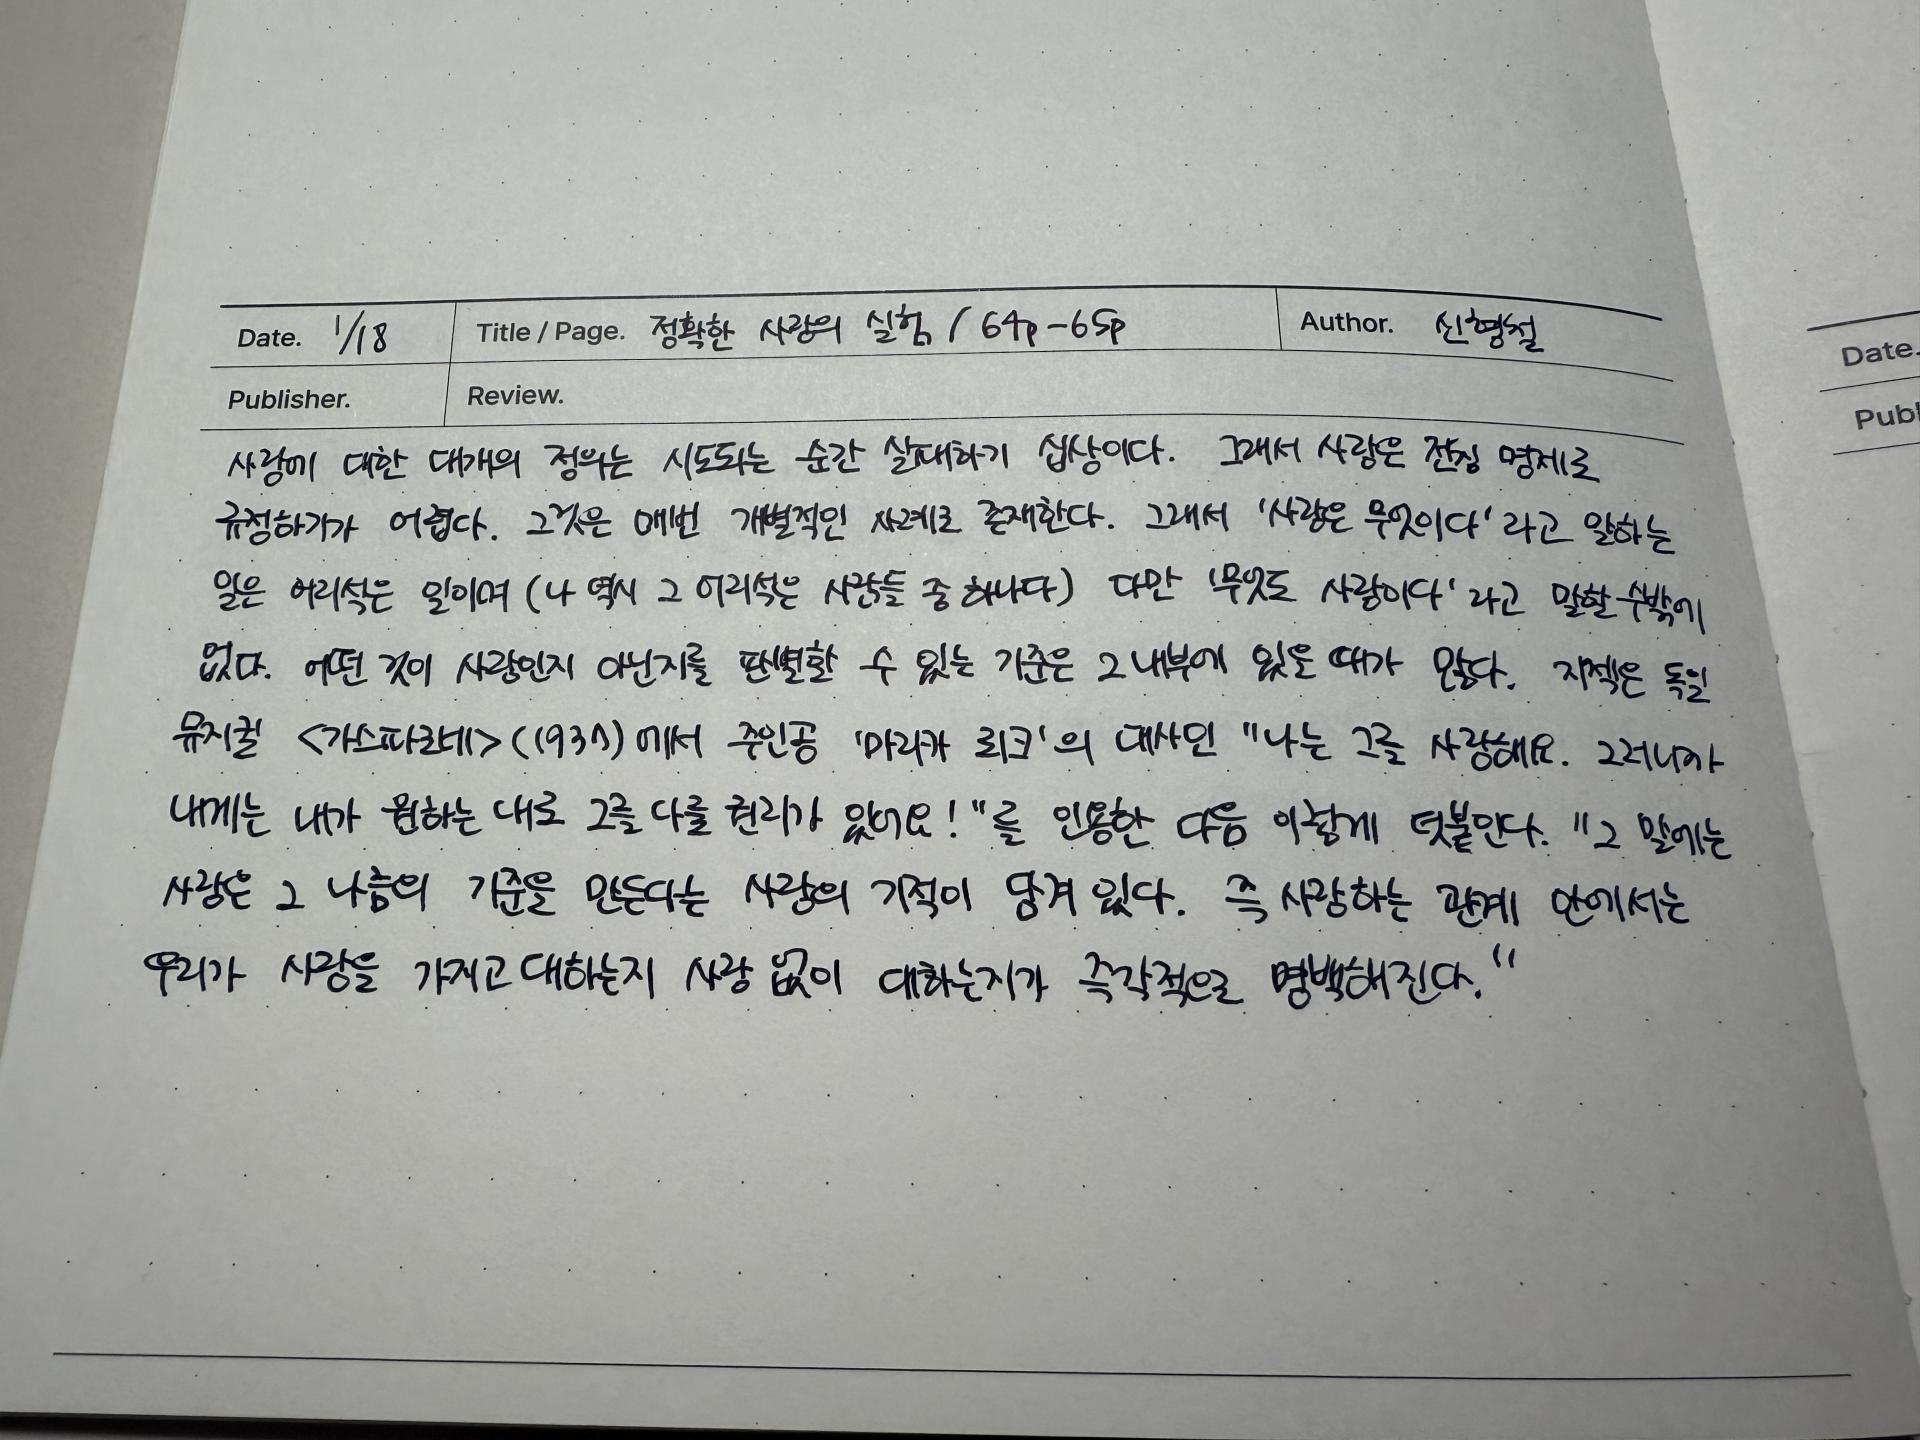 Date. 1/18 Title / Page. 정확한 사랑의 실험 / 64p-65p Author. 신형철
Publisher. Review.
사랑에 대한 대개의 정의는 시도되는 순간 실패하기 십상이다. 그래서 사랑은 전칭 명제로
규정하기가 어렵다. 그것은 매번 개별적인 사례로 존재한다. 그래서 '사랑은 무엇이다'라고 말하는
일은 어리석은 일이며 (나 역시 그 어리석은 사람들 중 하나다) 다만 '무엇도 사랑이다'라고 말할 수밖에
없다. 어떤 것이 사랑인지 아닌지를 판별할 수 있는 기준은 그 내부에 있을 때가 많다. 지젝은 독일
뮤지컬 <가스파로네>(1937)에서 주인공 '마리카 뢰크'의 대사인 "나는 그를 사랑해요. 그러니까
내게는 내가 원하는 대로 그를 다룰 권리가 있어요!"를 인용한 다음 이렇게 덧붙인다. "그 말에는
사랑은 그 나름의 기준을 만든다는 사랑의 기적이 담겨 있다. 즉 사랑하는 관계 안에서는
우리가 사랑을 가지고 대하는지 사랑 없이 대하는지가 즉각적으로 명백해진다."
Date.
Publ